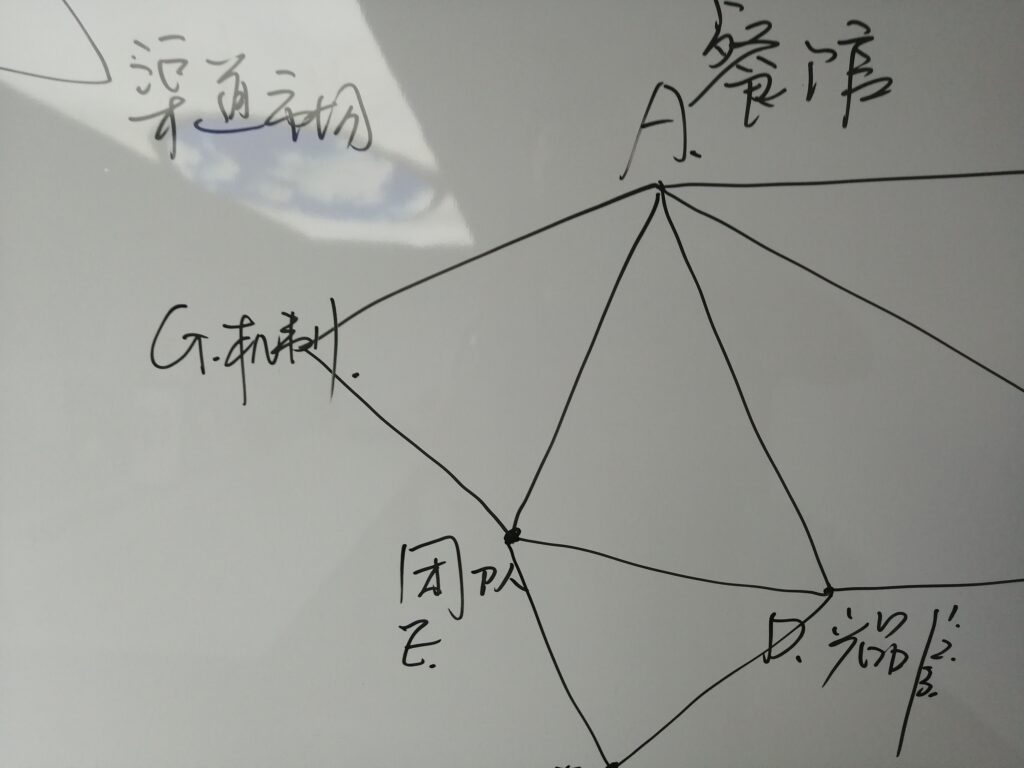 渠道市场
餐馆
A.
G.机制.
团队
E.
D.
1.
2.
3.